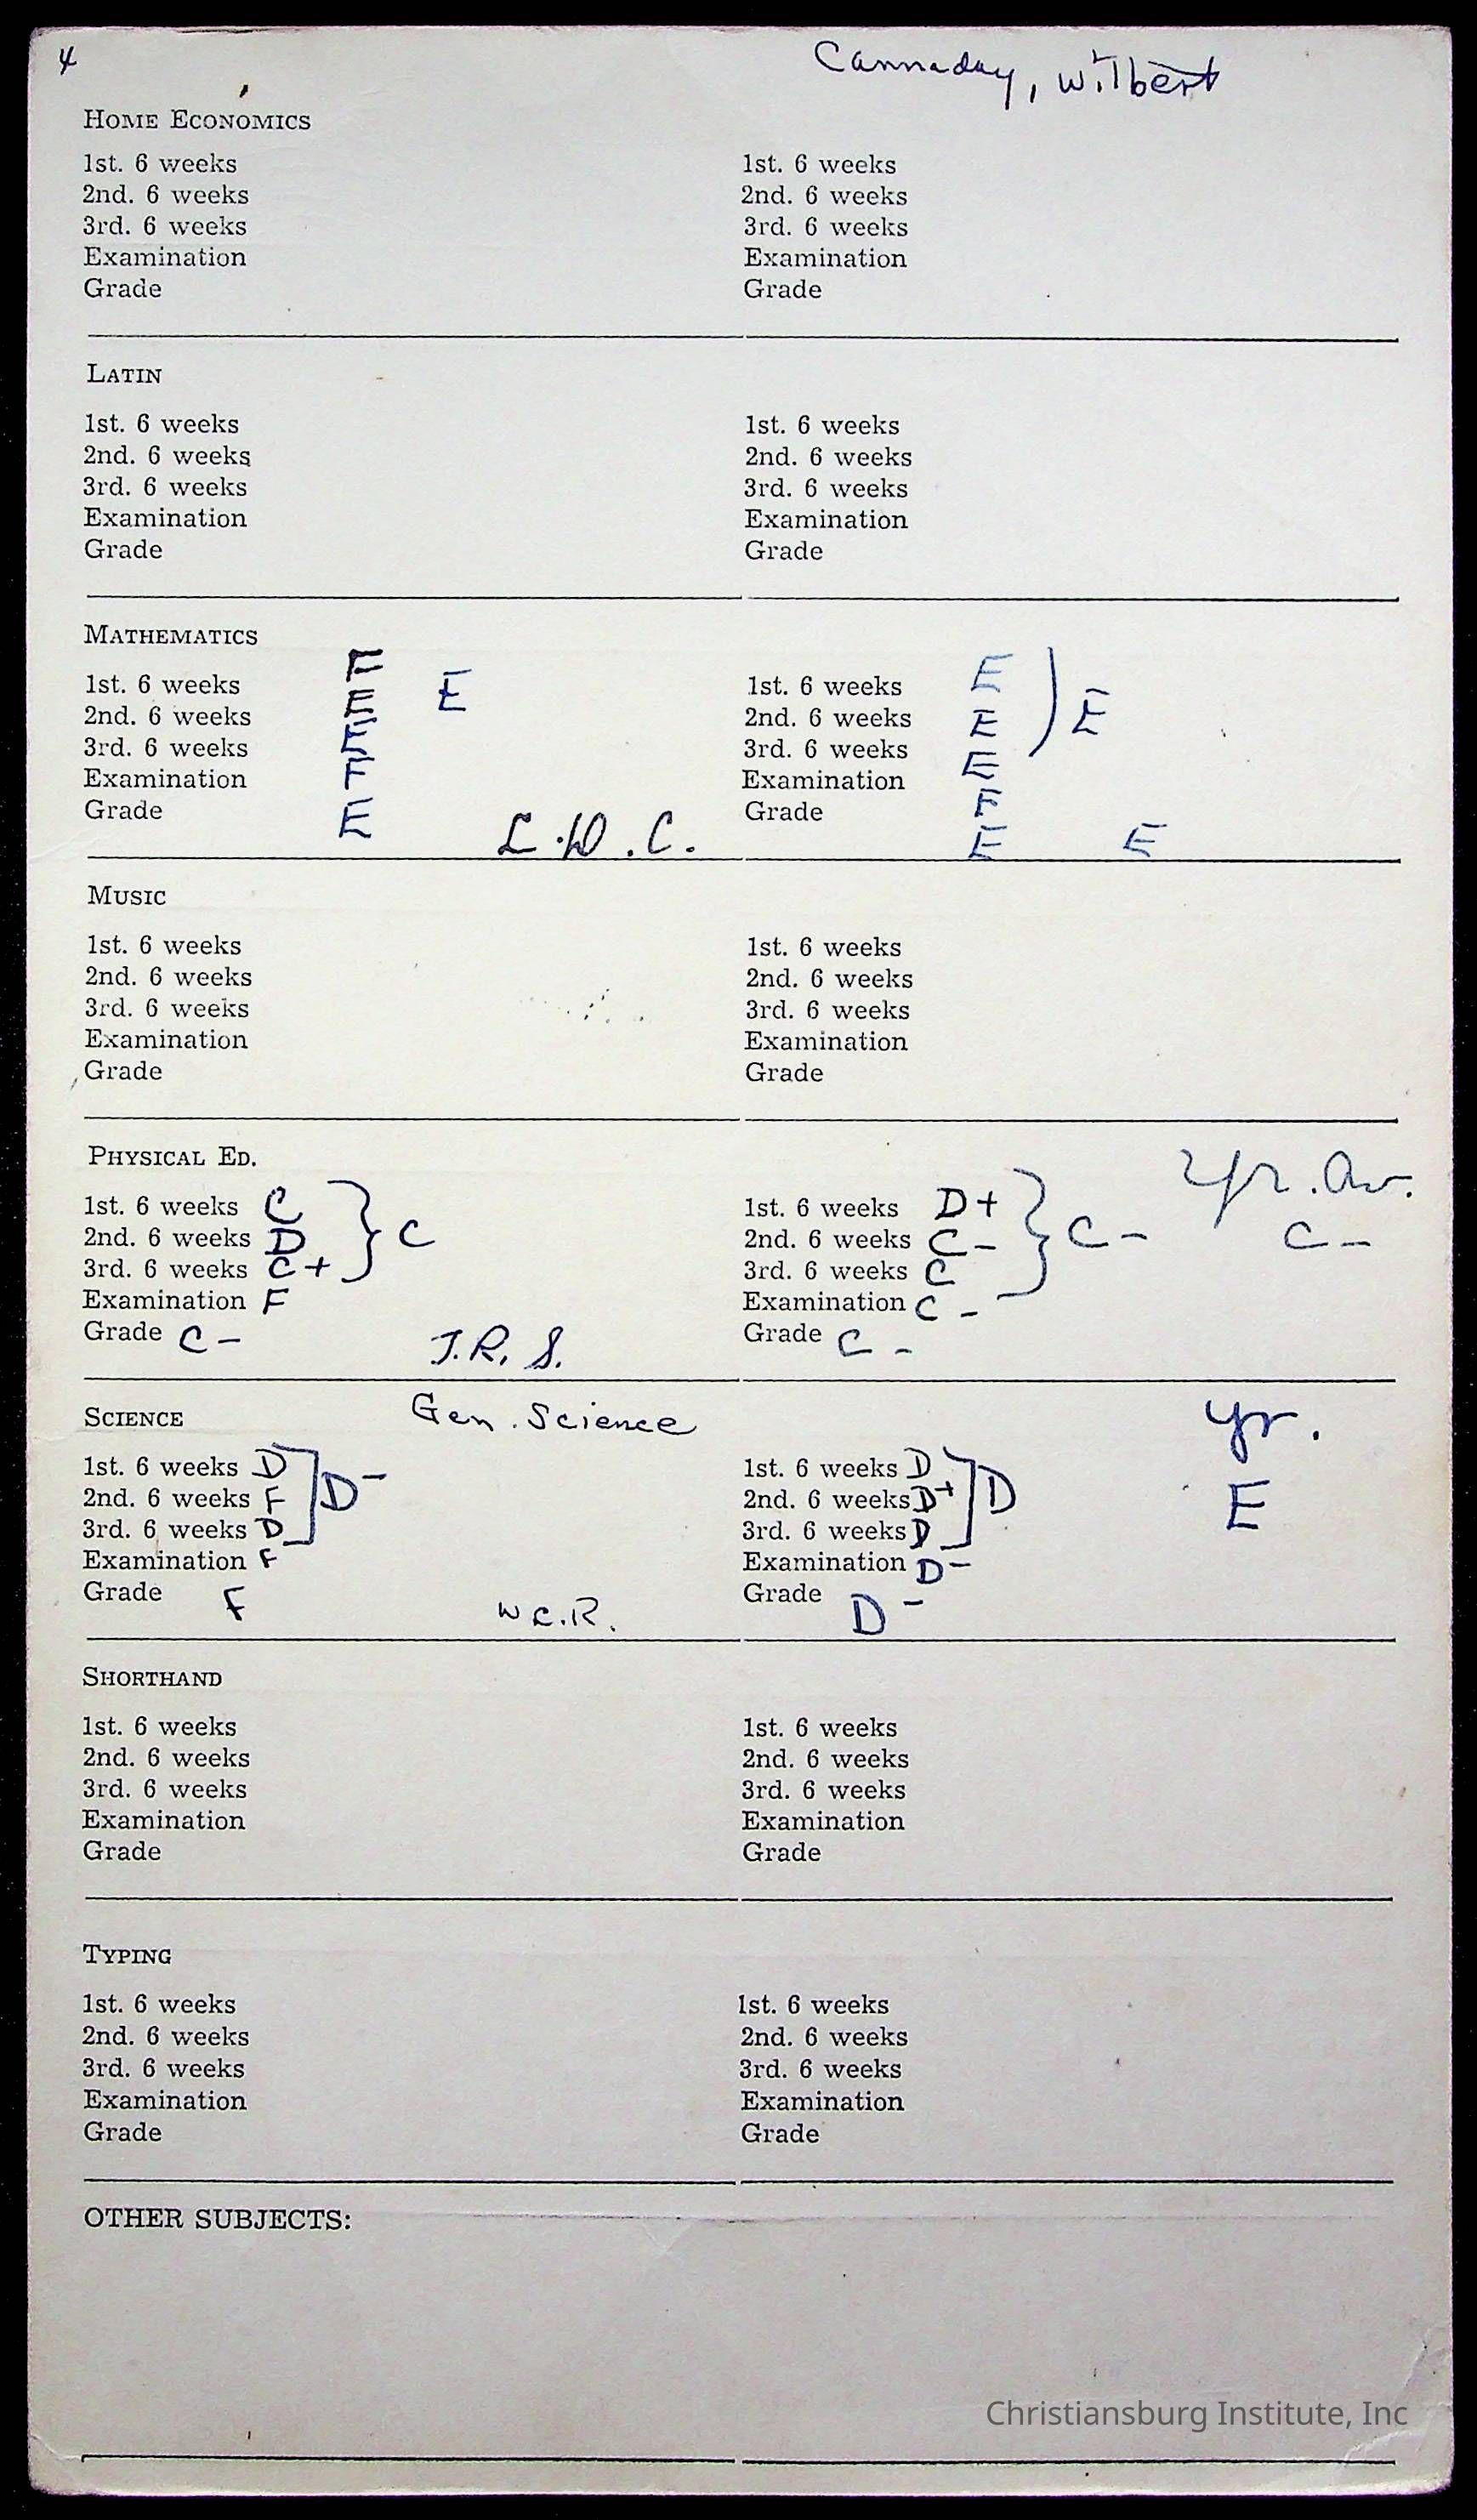 4
Cannaday, Wilbert
HOME ECONOMICS
1st. 6 weeks
2nd. 6 weeks
3rd. 6 weeks
Examination
Grade
1st. 6 weeks
2nd. 6 weeks
3rd. 6 weeks
Examination
Grade
LATIN
1st. 6 weeks
2nd. 6 weeks
3rd. 6 weeks
Examination
Grade
1st. 6 weeks
2nd. 6 weeks
3rd. 6 weeks
Examination
Grade
MATHEMATICS
1st. 6 weeks F
2nd. 6 weeks E E
3rd. 6 weeks E
Examination F
Grade E
L.W.C.
1st. 6 weeks E
2nd. 6 weeks E E
3rd. 6 weeks E
Examination F
Grade E E
MUSIC
1st. 6 weeks
2nd. 6 weeks
3rd. 6 weeks
Examination
Grade
1st. 6 weeks
2nd. 6 weeks
3rd. 6 weeks
Examination
Grade
PHYSICAL ED.
1st. 6 weeks C
2nd. 6 weeks D C
3rd. 6 weeks C+
Examination F
Grade C-
J.R.S.
Yr. Av.
1st. 6 weeks D+
2nd. 6 weeks C- C- C-
3rd. 6 weeks C
Examination C-
Grade C-
SCIENCE Gen. Science
1st. 6 weeks D
2nd. 6 weeks F D-
3rd. 6 weeks D
Examination F
Grade F
W.C.R.
yr.
1st. 6 weeks D
2nd. 6 weeks D+ D E
3rd. 6 weeks D
Examination D-
Grade D-
SHORTHAND
1st. 6 weeks
2nd. 6 weeks
3rd. 6 weeks
Examination
Grade
1st. 6 weeks
2nd. 6 weeks
3rd. 6 weeks
Examination
Grade
TYPING
1st. 6 weeks
2nd. 6 weeks
3rd. 6 weeks
Examination
Grade
1st. 6 weeks
2nd. 6 weeks
3rd. 6 weeks
Examination
Grade
OTHER SUBJECTS:
Christiansburg Institute, Inc